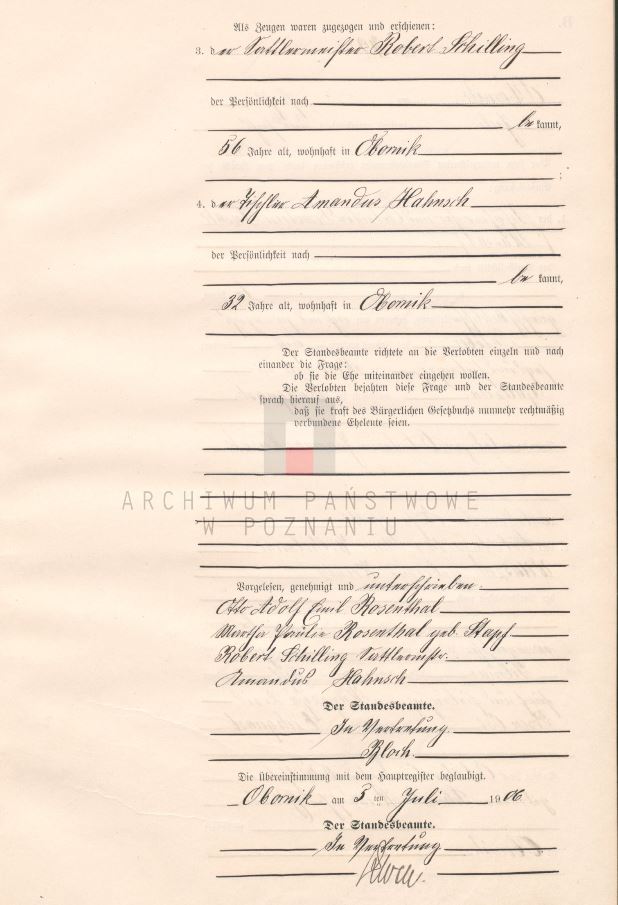 Als Zeugen waren zugezogen und erschienen:
3. der Sattlermeister Robert Schilling
der Persönlichkeit nach
be kannt,
56 Jahre alt, wohnhaft in Obornik
;
4. der Tischler Amandus Hahnsch
der Persönlichkeit nach
be kannt,
32 Jahre alt, wohnhaft in Obornik
Der Standesbeamte richtete an die Verlobten einzeln und nach
einander die Frage:
ob sie die Ehe miteinander eingehen wollen.
Die Verlobten bejahten diese Frage und der Standesbeamte
sprach hierauf aus,
daß sie kraft des Bürgerlichen Gesetzbuchs nunmehr rechtmäßig
verbundene Eheleute seien.
ARCHIWUM PAŃSTWOWE
W POZNANIU
Vorgelesen, genehmigt und unterschrieben:
Otto Adolf Emil Rosenthal
Martha Paulie Rosenthal geb. Stapf
Robert Schilling Sattlermstr.
Amandus Hahnsch
Der Standesbeamte.
In Vertretung
Bloch.
Die Übereinstimmung mit dem Hauptregister beglaubigt.
Obornik am 3 ten Juli 1906
Der Standesbeamte.
In Vertretung
Bloch.